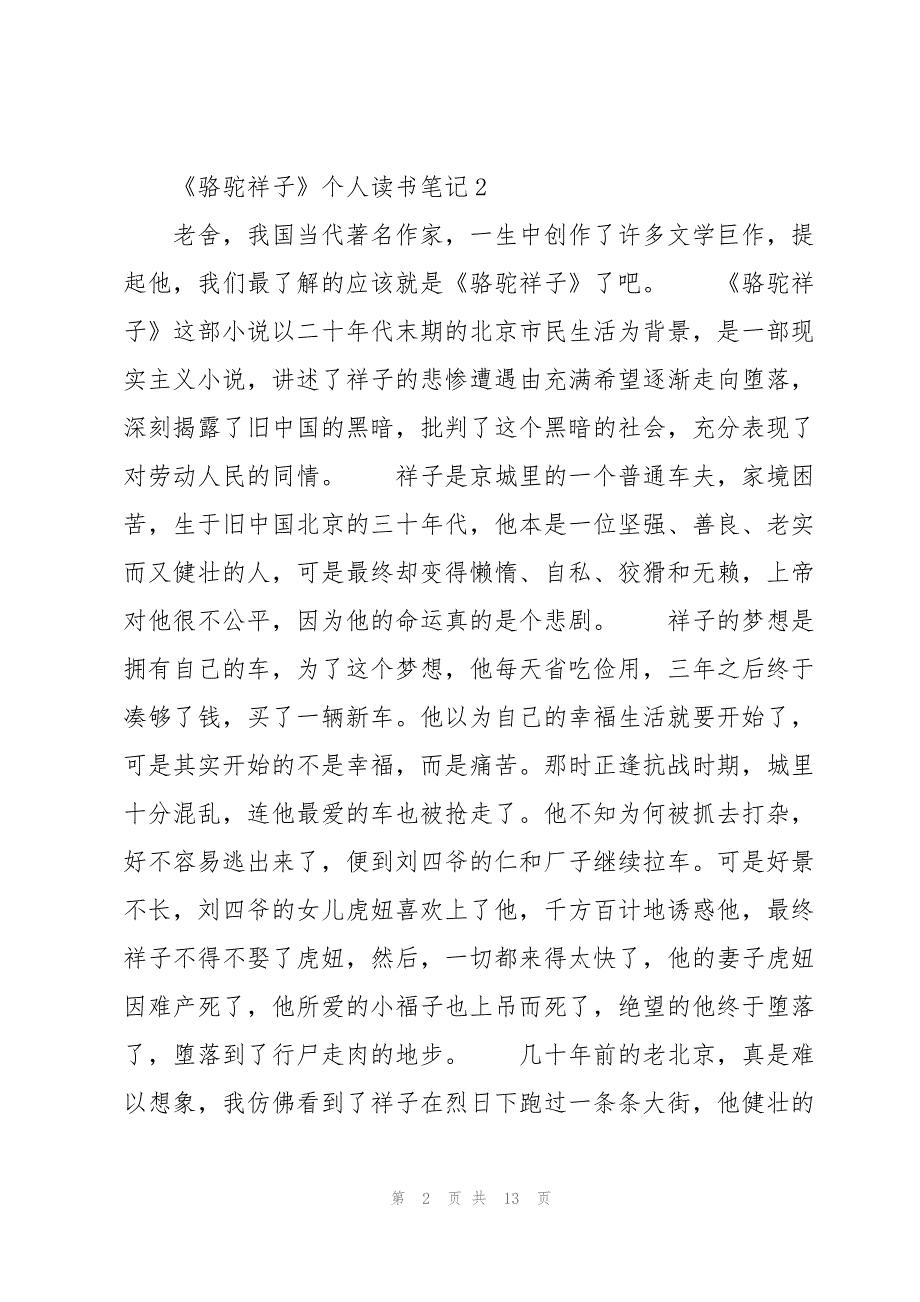 《骆驼祥子》个人读书笔记2
老舍，我国当代著名作家，一生中创作了许多文学巨作，提
起他，我们最了解的应该就是《骆驼祥子》了吧。　　《骆驼祥
子》这部小说以二十年代末期的北京市民生活为背景，是一部现
实主义小说，讲述了祥子的悲惨遭遇由充满希望逐渐走向堕落，
深刻揭露了旧中国的黑暗，批判了这个黑暗的社会，充分表现了
对劳动人民的同情。　　祥子是京城里的一个普通车夫，家境困
苦，生于旧中国北京的三十年代，他本是一位坚强、善良、老实
而又健壮的人，可是最终却变得懒惰、自私、狡猾和无赖，上帝
对他很不公平，因为他的命运真的是个悲剧。　　祥子的梦想是
拥有自己的车，为了这个梦想，他每天省吃俭用，三年之后终于
凑够了钱，买了一辆新车。他以为自己的幸福生活就要开始了，
可是其实开始的不是幸福，而是痛苦。那时正逢抗战时期，城里
十分混乱，连他最爱的车也被抢走了。他不知为何被抓去打杂，
好不容易逃出来了，便到刘四爷的仁和厂子继续拉车。可是好景
不长，刘四爷的女儿虎妞喜欢上了他，千方百计地诱惑他，最终
祥子不得不娶了虎妞，然后，一切都来得太快了，他的妻子虎妞
因难产死了，他所爱的小福子也上吊而死了，绝望的他终于堕落
了，堕落到了行尸走肉的地步。　　几十年前的老北京，真是难
以想象，我仿佛看到了祥子在烈日下跑过一条条大街，他健壮的
第 2 页 共 13 页